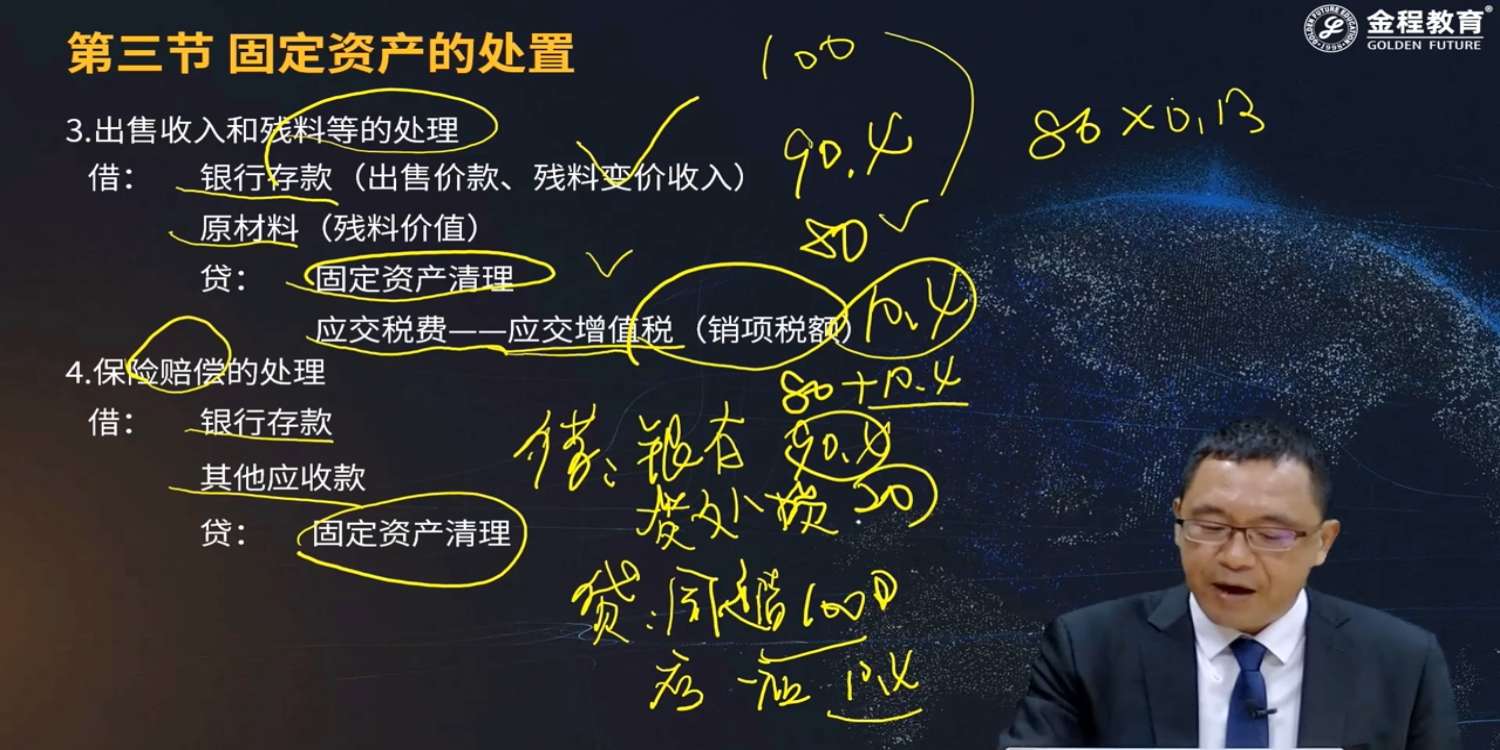 第三节 固定资产的处置
金程教育
GOLDEN FUTURE
3.出售收入和残料等的处理
借： 银行存款（出售价款、残料变价收入）
原材料（残料价值）
贷： 固定资产清理
应交税费——应交增值税（销项税额）
4.保险赔偿的处理
借： 银行存款
其他应收款
贷： 固定资产清理
100
90.4
80
80×0.13
10.4
80+10.4
借：银存 90.4
资处损 20
贷：固清 100
应－税 10.4